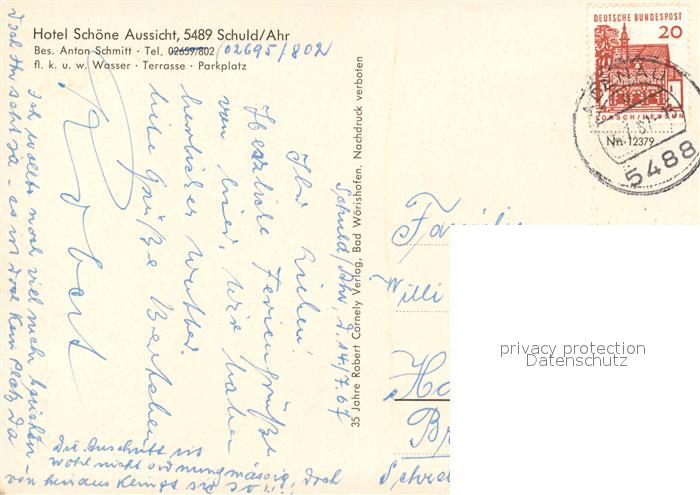 Hotel Schöne Aussicht, 5489 Schuld/Ahr
Bes. Anton Schmitt · Tel. 02659/802 (02695/802
fl. k. u. w. Wasser · Terrasse · Parkplatz
DEUTSCHE BUNDESPOST
20
LORSCH/HESSEN
ADENAU
5488
Nn 12379
35 Jahre Robert Cornely Verlag, Bad Wörishofen. Nachdruck verboten
Schuld/Ahr, d. 14/7.67
Ihr Lieben!
Herzliche Feriengrüße
von hier. Wir haben
herrliches Wetter.
liebe Grüße Bertchen
Robert
Ich wollte noch viel mehr berichten
Doch Ihr seht ja – es ist doch kein Platz da
Die Anschrift ist
wohl nicht ordnungsmässig, doch
von hinten klingt sie so!!!
Familie
Willi
Ha
Br
Schre
privacy protection
Datenschutz